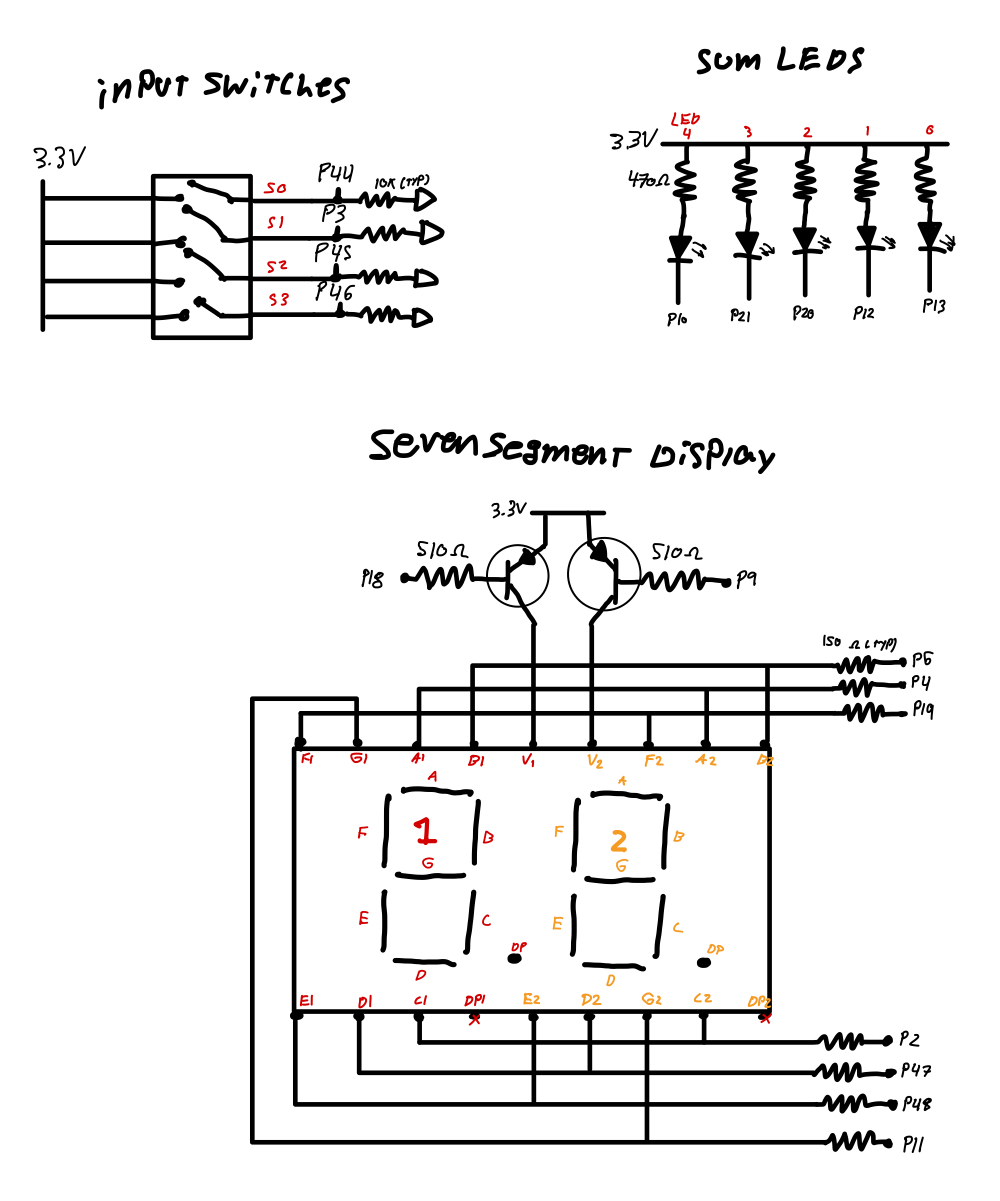 inPUT SWiTCHes
3.3V
S0
P44
10K (TYP)
S1
P3
S2
P45
S3
P46
Sum LEDS
3.3V
LED
4 3 2 1 0
470Ω
P10 P21 P20 P12 P13
SevenSegmenT DiSPlay
3.3V
510Ω 510Ω
P18 P9
150 Ω (TYP)
P4
P19
F1 G1 A1 B1 V1 V2 F2 A2 B2
A A
F 1 B F 2 B
G G
E C E C
DP DP
D D
E1 D1 C1 DP1 E2 D2 G2 C2 DP2
x x
P2
P47
P48
P11